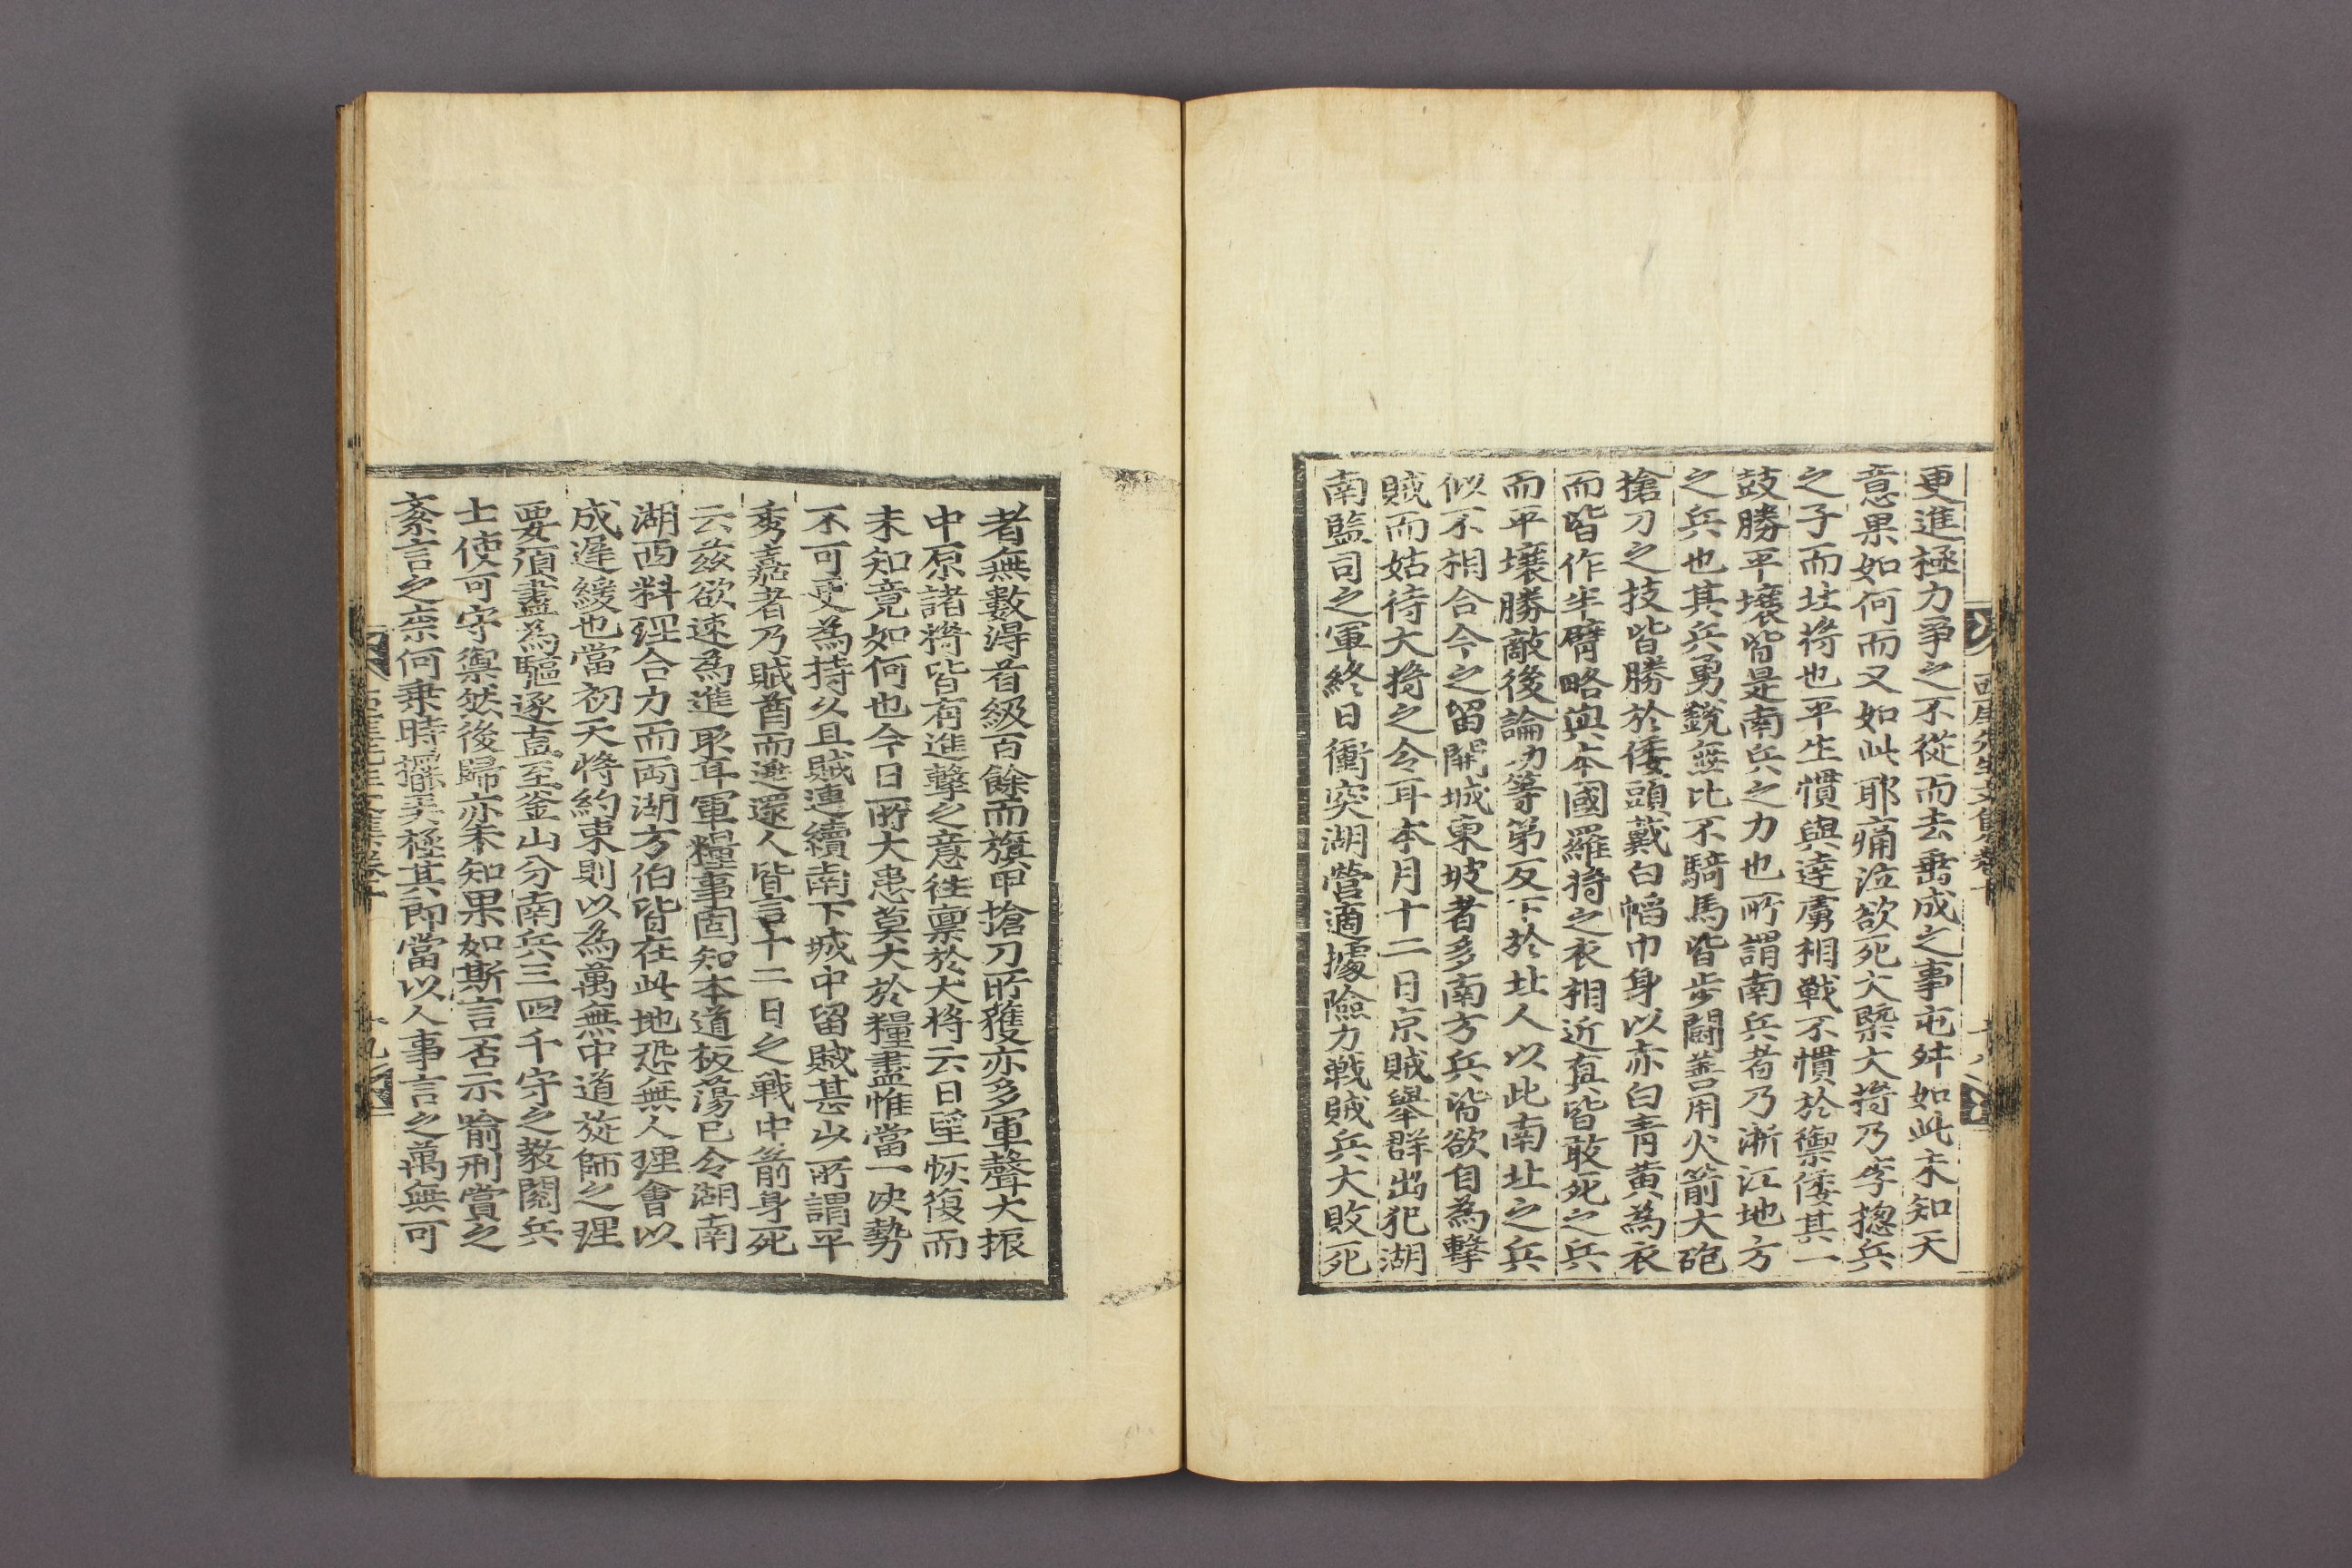 西厓先生文集卷十
更進極力爭之不從而去垂成之事屯舛如此未知天
意果如何而又如此耶痛泣欲死大槩大將乃李摠兵
之子而北將也平生慣與㺚虜相戰不慣於禦倭其一
鼓勝平壤皆是南兵之力也所謂南兵者乃浙江地方
之兵也其兵勇銳無比不騎馬皆步鬪善用火箭大砲
搶刀之技皆勝於倭頭戴白幍巾身以赤白靑黃爲衣
而皆作半臂略與本國羅將之衣相近眞皆敢死之兵
而平壤勝敵後論功等第反下於北人以此南北之兵
似不相合今之留開城東坡者多南方兵皆欲自爲擊
賊而姑待大將之令耳本月十二日京賊擧群出犯湖
南監司之軍終日衝突湖營適據險力戰賊兵大敗死
者無數得首級百餘而旗甲搶刀所獲亦多軍聲大振
中原諸將皆有進擊之意徃禀於大將云日望恢復而
未知竟如何也今日所大患莫大於糧盡惟當一決勢
不可更爲持久且賊連續南下城中留賊甚少所謂平
秀嘉者乃賊酋而逃還人皆言十二日之戰中箭身死
云茲欲速爲進取耳軍糧事固知本道板蕩已令湖南
湖西料理合力而兩湖方伯皆在此地恐無人理會以
成遲緩也當初天將約束則以爲萬無中道旋師之理
要須盡爲驅逐直至釜山分南兵三四千守之敎閱兵
士使可守禦然後歸亦未知果如斯言否示喩刑賞之
紊言之奈何乘時撮弄極其即當以人事言之萬無可
西厓先生文集卷十
十九